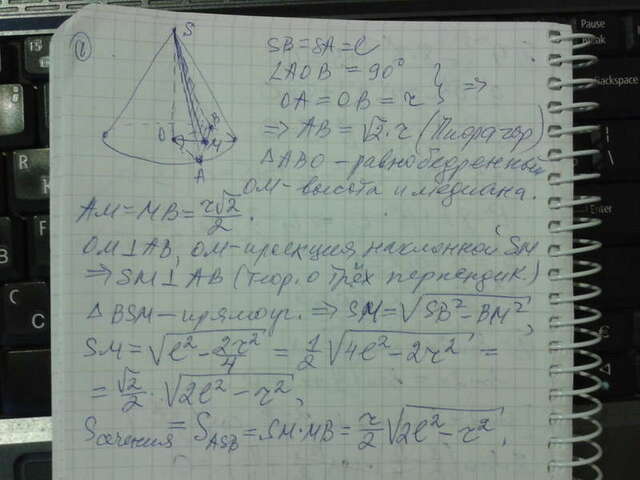 ①
S
O
B
M
A
SB=SA=l
∠AOB = 90° }
OA=OB=r } =>
=> AB=√2·r (Пифагор)
△ABO-равнобедренный
OM-высота и медиана.
AM=MB=r√2/2.
OM⊥AB, OM-проекция наклонной SM
=> SM⊥AB (теор. о трёх перпендик)
△BSM-прямоуг. => SM=√(SB²-BM²),
SM=√(l²-2r²/4) = 1/2 √(4l²-2r²) =
= √2/2 · √(2l²-r²),
Sсечения = S_ASB = SM·MB = r/2 √(2l²-r²).
Pause
Break
Backspace
Enter